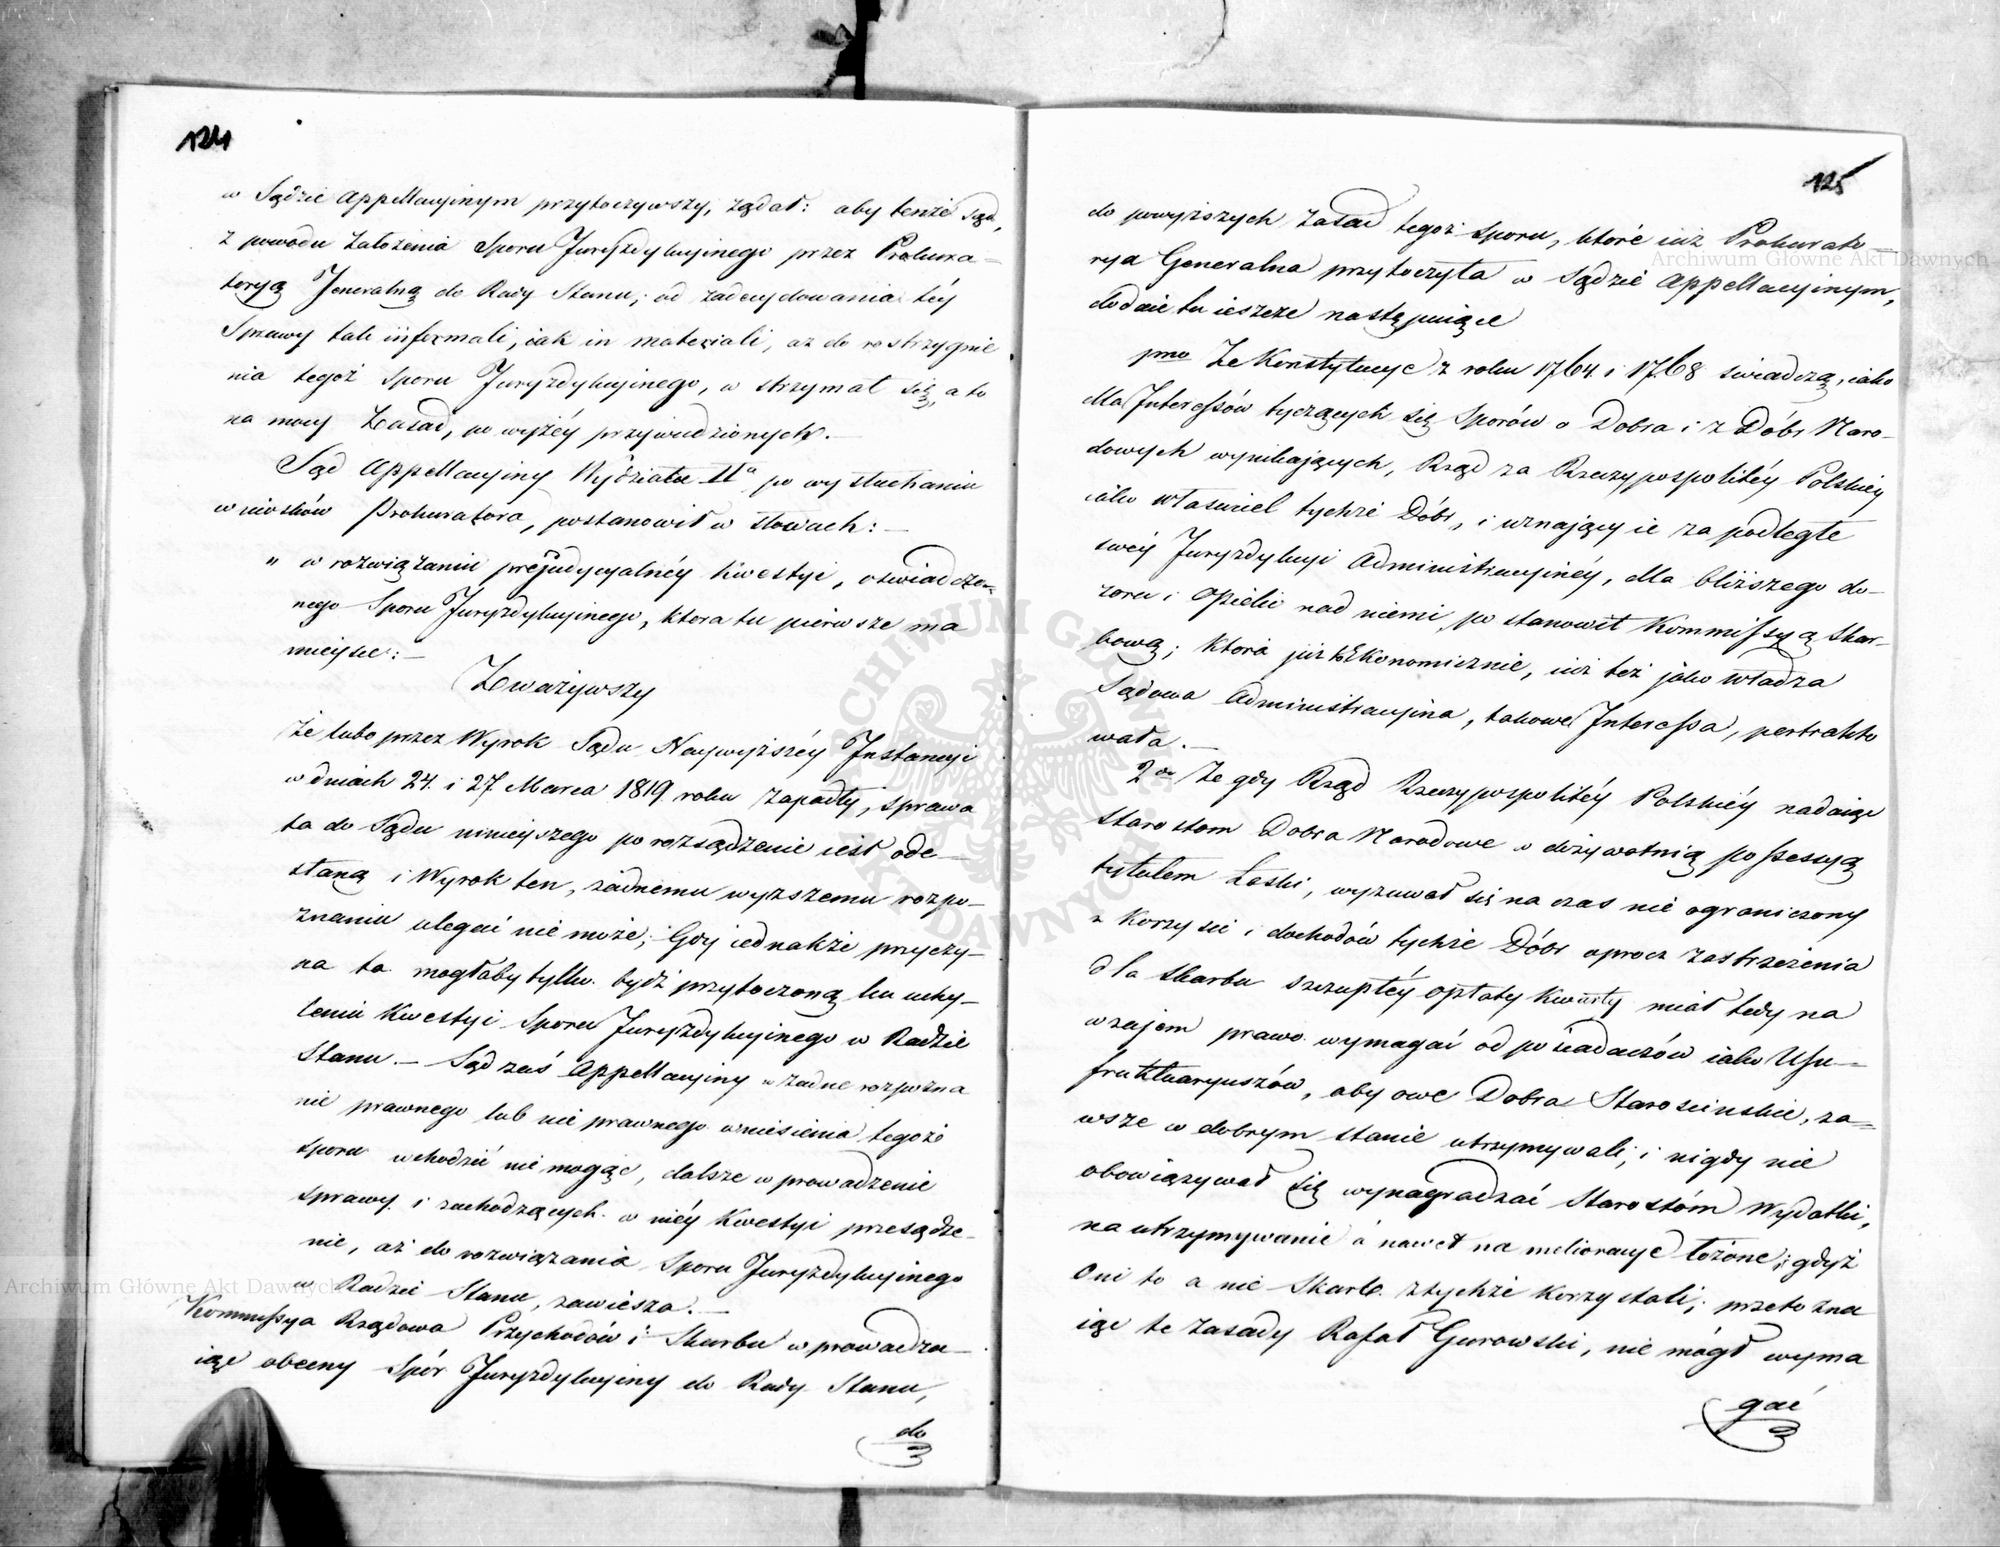 124
w Sądzie Appellacyinym przytoczywszy, żądał: aby tenże Sąd,
z powodu założenia Sporu Juryzdykcyinego przez Prokura-
toryą Jeneralną do Rady Stanu; od zadecydowania téy
Sprawy tak informali, iak in materiali, aż do rostrzygnie
nia tegoż Sporu Juryzdykcyinego, w strzymał się, a to
na mocy Zasad, powyżéy przywiedzionych.-
Sąd Appellacyiny Wydziału IIo po wysłuchaniu
wniosków Prokuratora, postanowił w słowach:-
" w rozwiązaniu prejudycyalnéy kwestyi, oświadczo-
nego Sporu Juryzdykcyinego, która tu pierwsze ma
mieysce:-
Zważywszy
Że lubo przez Wyrok Sądu Naywyższéy Instancyi
w dniach 24. i 27 Marca 1819. roku zapadły, sprawa
ta do Sądu ninieyszego po rozsądzenie iest ode-
słaną i Wyrok ten, żadnemu wyższemu rozpo-
znaniu ulegać nie może; Gdy iednakże przyczy-
na ta mogłaby tylko bydź przytoczoną ku uchy-
leniu Kwestyi Sporu Juryzdykcyinego w Radzie
Stanu.- Sąd zaś Appellacyiny w żadne rozpozna
nie prawnego lub nie prawnego wniesienia tegoż
sporu wchodzić nie mogąc, dalsze wprowadzenie
sprawy i zachodzących w niéy Kwestyi przesądze-
nie, aż do rozwiązania Sporu Juryzdykcyinego
w Radzie Stanu, zawiesza.-
Kommissya Rządowa Przychodów i Skarbu wprowadza-
iąc obecny Spór Juryzdykcyiny do Rady Stanu,
do
125
do powyższych Zasad tegoż Sporu, które iuż Prokurato-
rya Generalna przytoczyła w Sądzie Appellacyinym,
dodaie tu ieszcze następuiące
pmo Że Konstytucye z roku 1764. i 1768 świadczą, iako
dla Interessów tyczących się Sporów o Dobra i z Dóbr Naro-
dowych wynikaiących, Rząd za Rzeczypospolitéy Polskiéy
iako właściciel tychże Dóbr, i uznaiący ie za podległe
swéy Juryzdykcyi Administracyinéy, dla bliższego do-
zoru i Opieki nad niemi, postanowił Kommissyą Skar-
bową; która już to Ekonomicznie, iuż też jako władza
Sądowa Administracyina, takowe Interessa, pertrakto
wała.-
2do Że gdy Rząd Rzeczypospolitéy Polskiéy nadaiąc
Starostom Dobra Narodowe w dożywotnią possessyą
tytułem Łaski, wyzuwał się na czas nie ograniczony
z Korzyści i dochodów tychże Dóbr oprócz zastrzeżenia
dla Skarbu szczupłéy opłaty Kwarty miał tedy na
wzajem prawo wymagać od posiadaczów iako Usu-
fruktuaryuszów, aby owe Dobra Starościńskie, za-
wsze w dobrym stanie utrzymywali, i nigdy nie
obowiązywał się wynagradzać Starostóm Wydatki,
na utrzymywanie a nawet na melioracye łożone; gdyż
Oni to a nie Skarb ztychże Korzystali, przeto zna
iąc te zasady Rafał Gurowski, nie mógł wyma
gać